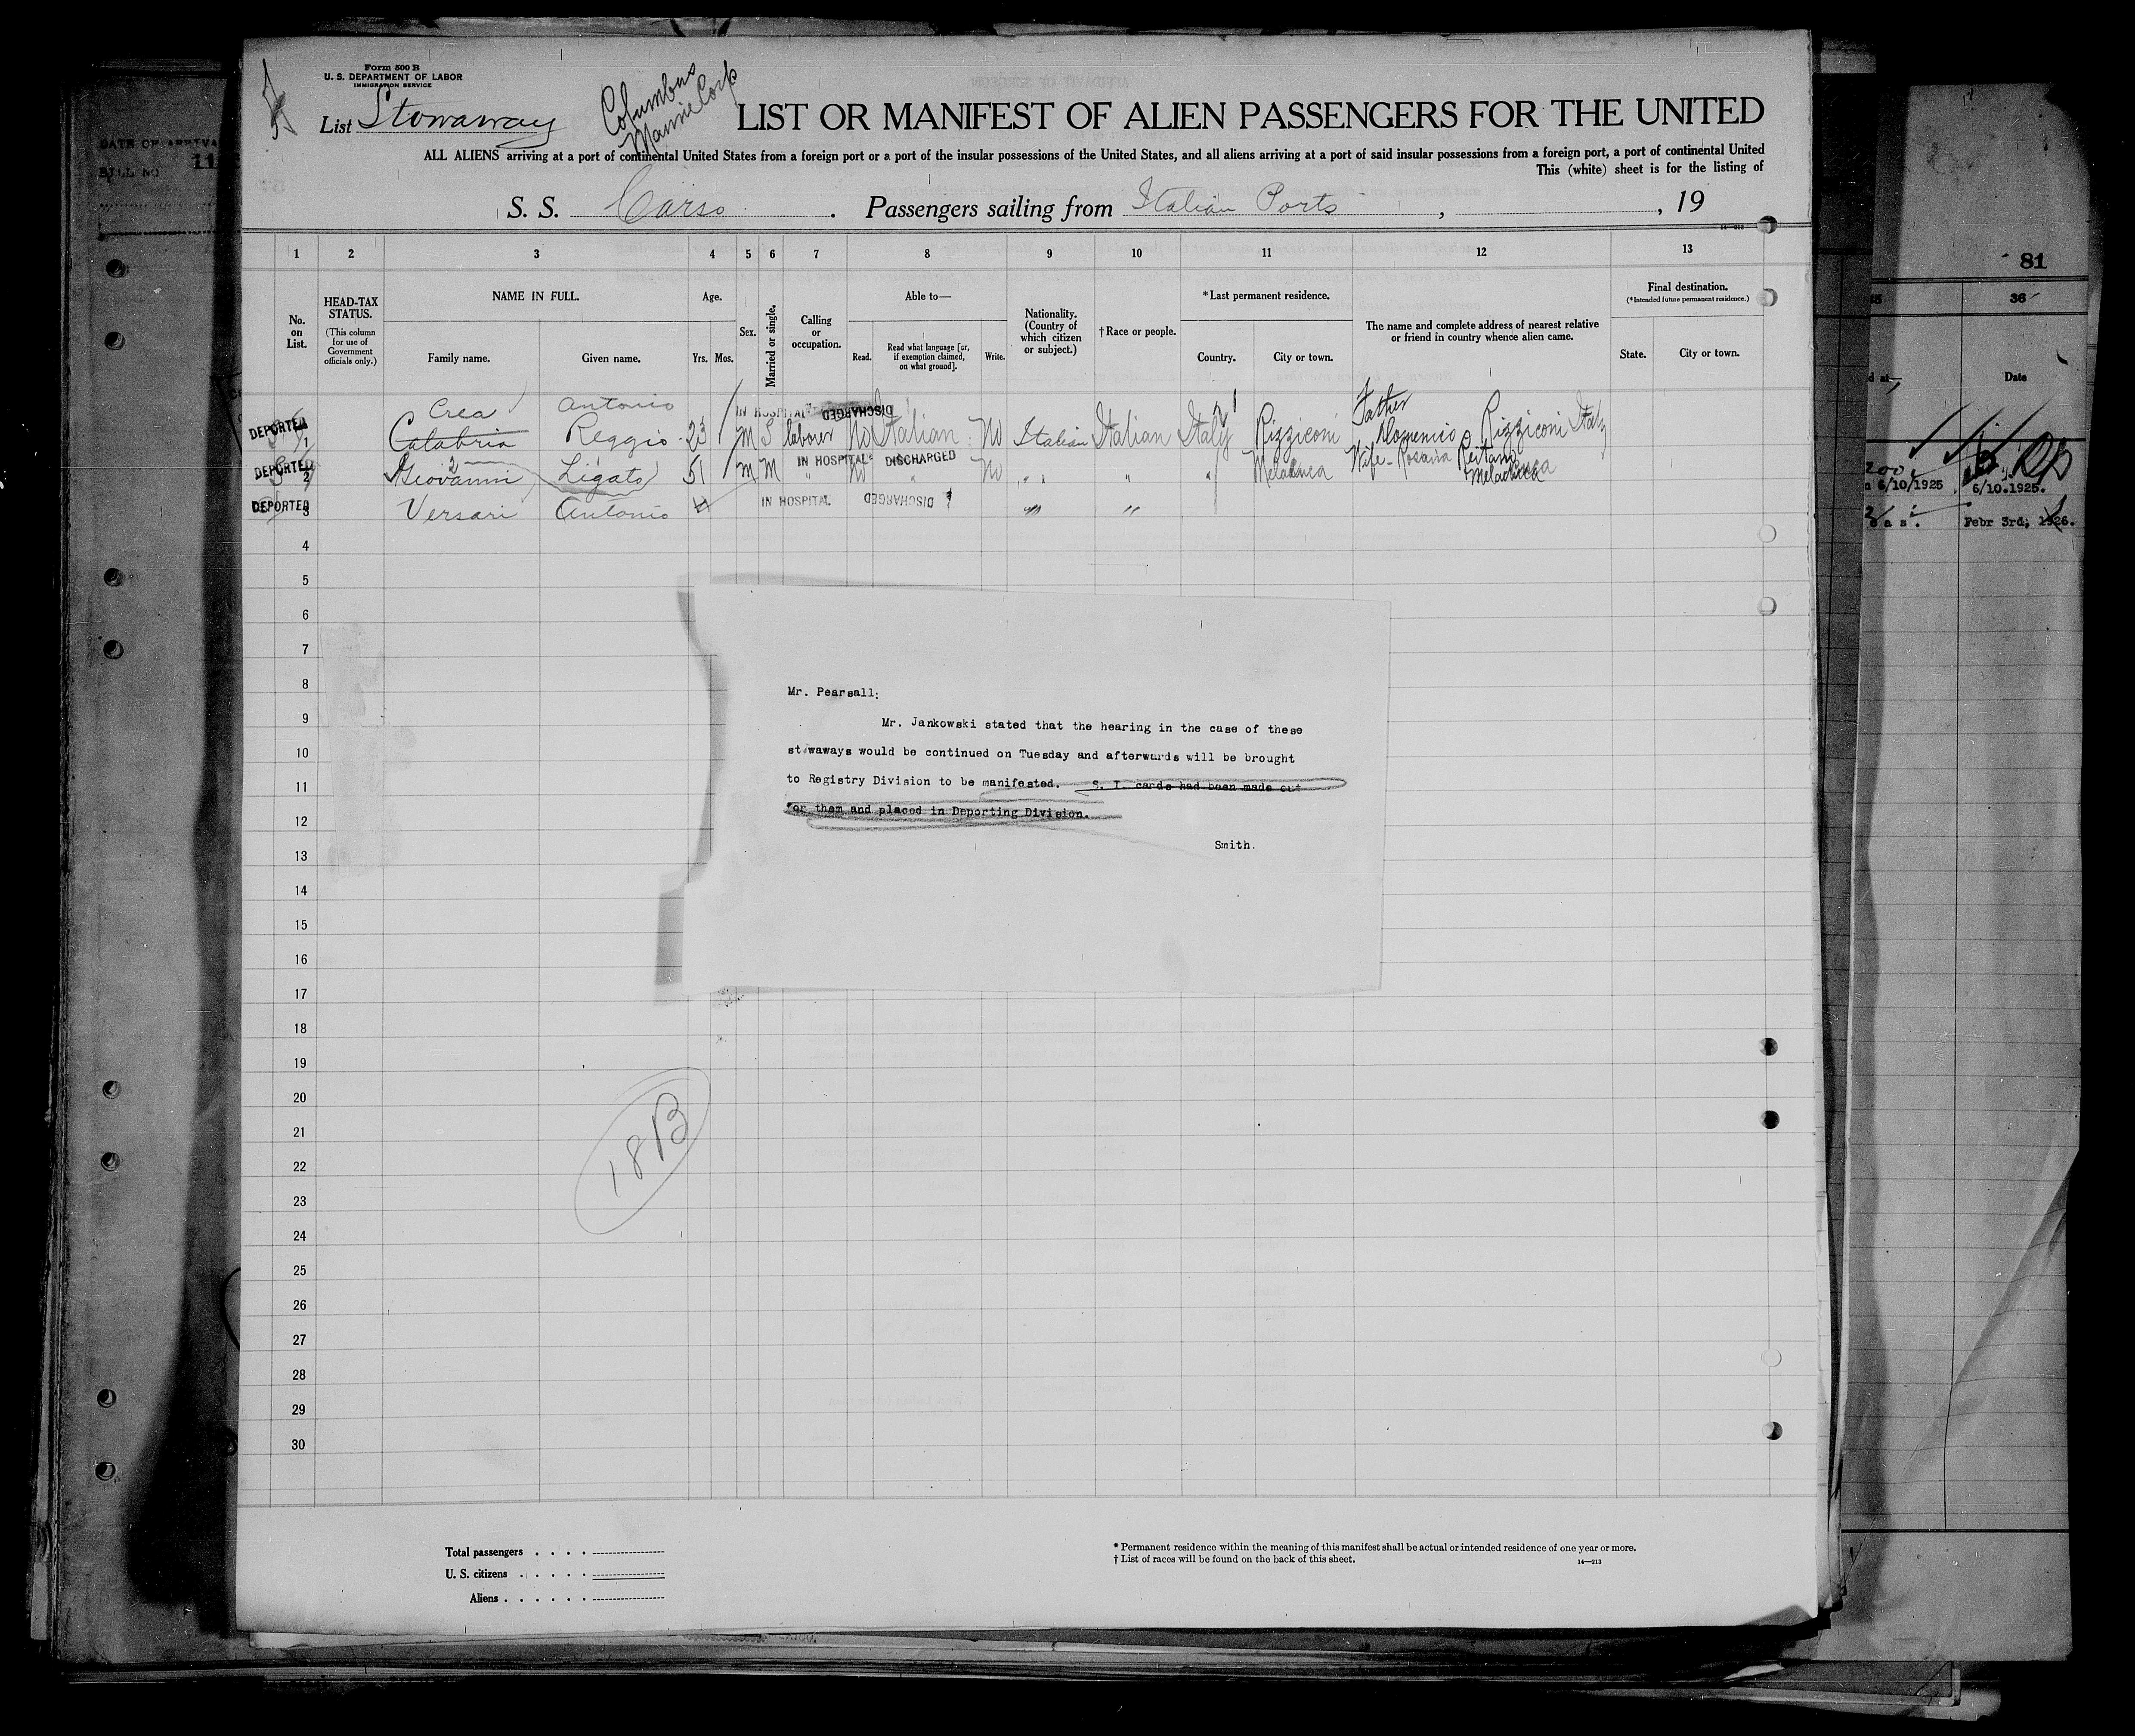 Form 500 B
U. S. DEPARTMENT OF LABOR
IMMIGRATION SERVICE
List Stowaway
Columbus
Marine Corp
LIST OR MANIFEST OF ALIEN PASSENGERS FOR THE UNITED
ALL ALIENS arriving at a port of continental United States from a foreign port or a port of the insular possessions of the United States, and all aliens arriving at a port of said insular possessions from a foreign port, a port of continental United
This (white) sheet is for the listing of
S. S. Carso. Passengers sailing from Italian Ports, , 19
14—213
1 2 3 4 5 6 7 8 9 10 11 12 13
No. on List.
HEAD-TAX STATUS.
(This column for use of Government officials only.)
NAME IN FULL.
Family name. Given name.
Age.
Yrs. Mos.
Sex.
Married or single.
Calling or occupation.
Able to—
Read. Read what language [or, if exemption claimed, on what ground]. Write.
Nationality. (Country of which citizen or subject.)
† Race or people.
* Last permanent residence.
Country. City or town.
The name and complete address of nearest relative or friend in country whence alien came.
Final destination.
(*Intended future permanent residence.)
State. City or town.
Crea Antonio IN HOSPITAL DISCHARGED Father
DEPORTED 1 Calabria Reggio 23 M S laborer No Italian No Italian Italian Italy Rizziconi Domenico Rizziconi Italy
DEPORTED 2 Giovanni Ligato 51 M M " IN HOSPITAL DISCHARGED No " No " " " " Wife - Rosaria Reitano
DEPORTED 3 Versari Antonio IN HOSPITAL DISCHARGED " "
4
5
6
7
8
9
10
11
12
13
14
15
16
17
18
19
20
21
22
23
24
25
26
27
28
29
30
Mr. Pearsall:
Mr. Jankowski stated that the hearing in the case of these
stowaways would be continued on Tuesday and afterwards will be brought
to Registry Division to be manifested. S. I. cards had been made out
for them and placed in Deporting Division.
Smith.
18 B
Total passengers . . . .
U. S. citizens . . . . .
Aliens . . . . . .
* Permanent residence within the meaning of this manifest shall be actual or intended residence of one year or more.
† List of races will be found on the back of this sheet.
14—213
DATE OF ARRIVA
BILL NO 11
81
36
Date
200
6/10/1925 6/10.1925.
Febr 3rd; 1926.